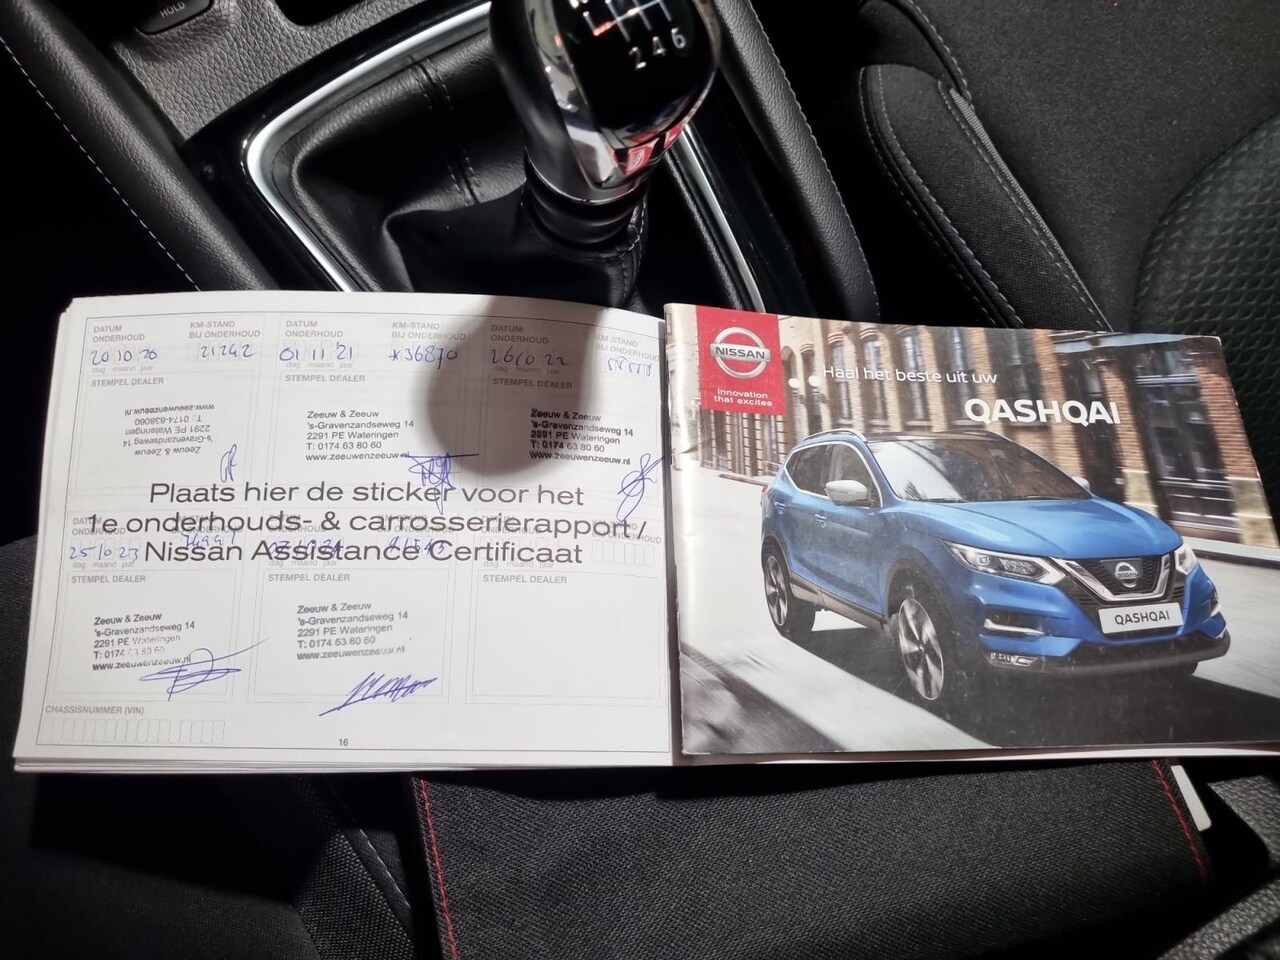 HOLD
2 4 6
DATUM
ONDERHOUD
KM-STAND
BIJ ONDERHOUD
20 10 20
21242
dag maand jaar
STEMPEL DEALER
Zeeuw & Zeeuw
's-Gravenzandseweg 14
T.: 0174-638060
www.zeeuwenzeeuw.nl
DATUM
ONDERHOUD
KM-STAND
BIJ ONDERHOUD
01 11 21
*36870
dag maand jaar
STEMPEL DEALER
Zeeuw & Zeeuw
's-Gravenzandseweg 14
2291 PE Wateringen
T: 0174 63 80 60
www.zeeuwenzeeuw.nl
DATUM
ONDERHOUD
KM-STAND
BIJ ONDERHOUD
dag maand jaar
STEMPEL DEALER
Zeeuw & Zeeuw
's-Gravenzandseweg 14
2291 PE Wateringen
T: 0174 63 80 60
www.zeeuwenzeeuw.nl
Plaats hier de sticker voor het
1e onderhouds- & carrosserierapport /
Nissan Assistance Certificaat
DATUM
ONDERHOUD
25 10 23
dag maand jaar
STEMPEL DEALER
Zeeuw & Zeeuw
's-Gravenzandseweg 14
2291 PE Wateringen
T: 0174 63 80 60
www.zeeuwenzeeuw.nl
dag maand jaar
STEMPEL DEALER
Zeeuw & Zeeuw
's-Gravenzandseweg 14
2291 PE Wateringen
T: 0174 63 80 60
www.zeeuwenzeeuw.nl
dag maand jaar
STEMPEL DEALER
CHASSISNUMMER (VIN)
16
NISSAN
Innovation
that excites
Haal het beste uit uw
QASHQAI
QASHQAI